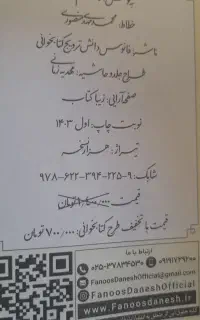 خطاط: محمدمهدی منصوری
ناشر: فانوس دانش ترویج کتابخوانی
طراح جلد و حاشیه: مهدیه زمانی
صفحه‌آرایی: زیبا کتاب
نوبت چاپ: اول ۱۴۰۳
تیراژ: هزار نسخه
شابک: ۹-۲۲۵-۳۹۴-۶۲۲-۹۷۸
قیمت تومان
قیمت با تخفیف طرح کتابخوانی: ۷۰۰/۰۰۰ تومان
ارتباط با ما
۰۲۵-۳۷۸۳۴۵۳۰
FanoosDaneshOfficial@gmail.com
FanoosDaneshOfficial
www.FanoosDanesh.ir